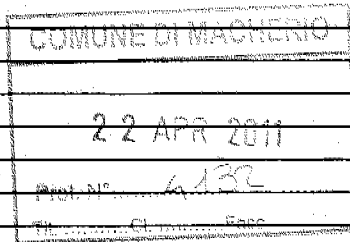 COMUNE DI MACHERIO
22 APR 2011
Prot. N° 4132
Tit. Cl. Fasc.